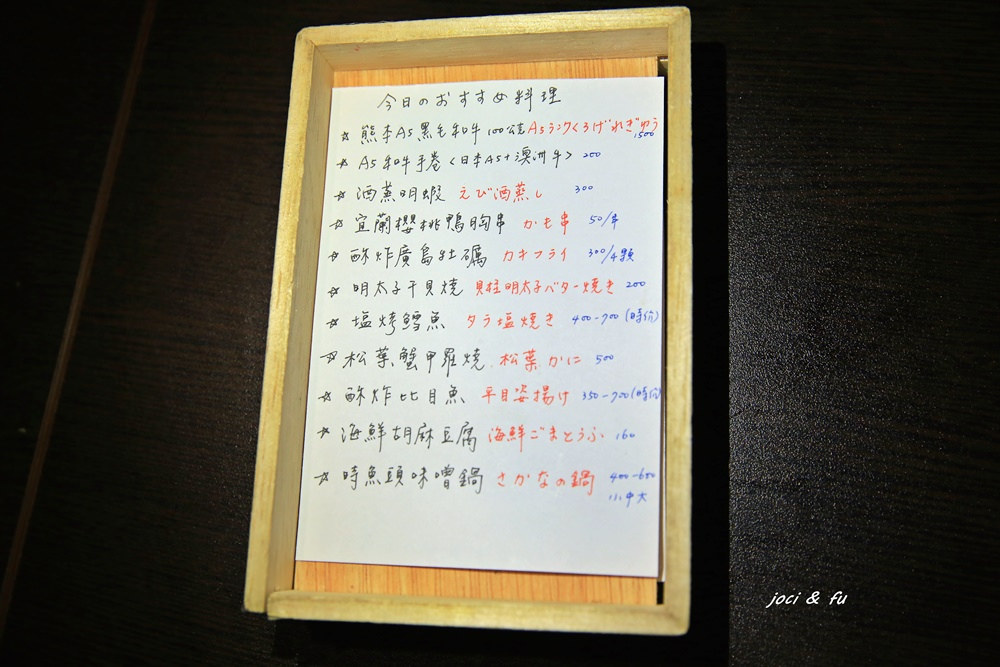 今日のおすすめ料理
☆ 熊本A5黑毛和牛100公克 A5ランクくろげわぎゅう 1500
☆ A5和牛手卷<日本A5+澳洲牛> 200
☆ 酒蒸明蝦 えび酒蒸し 300
☆ 宜蘭櫻桃鴨胸串 かも串 50/串
☆ 酥炸廣島牡礪 カキフライ 300/4顆
☆ 明太子干貝燒 貝柱明太子バター焼き 200
☆ 塩烤鱈魚 タラ塩焼き 400-700(時價)
☆ 松葉蟹甲羅燒 松葉かに 500
☆ 酥炸比目魚 平目姿揚げ 350-700(時價)
☆ 海鮮胡麻豆腐 海鮮ごまとうふ 160
☆ 時魚頭味噌鍋 さかなの鍋 400-600
小中大
joci & fu